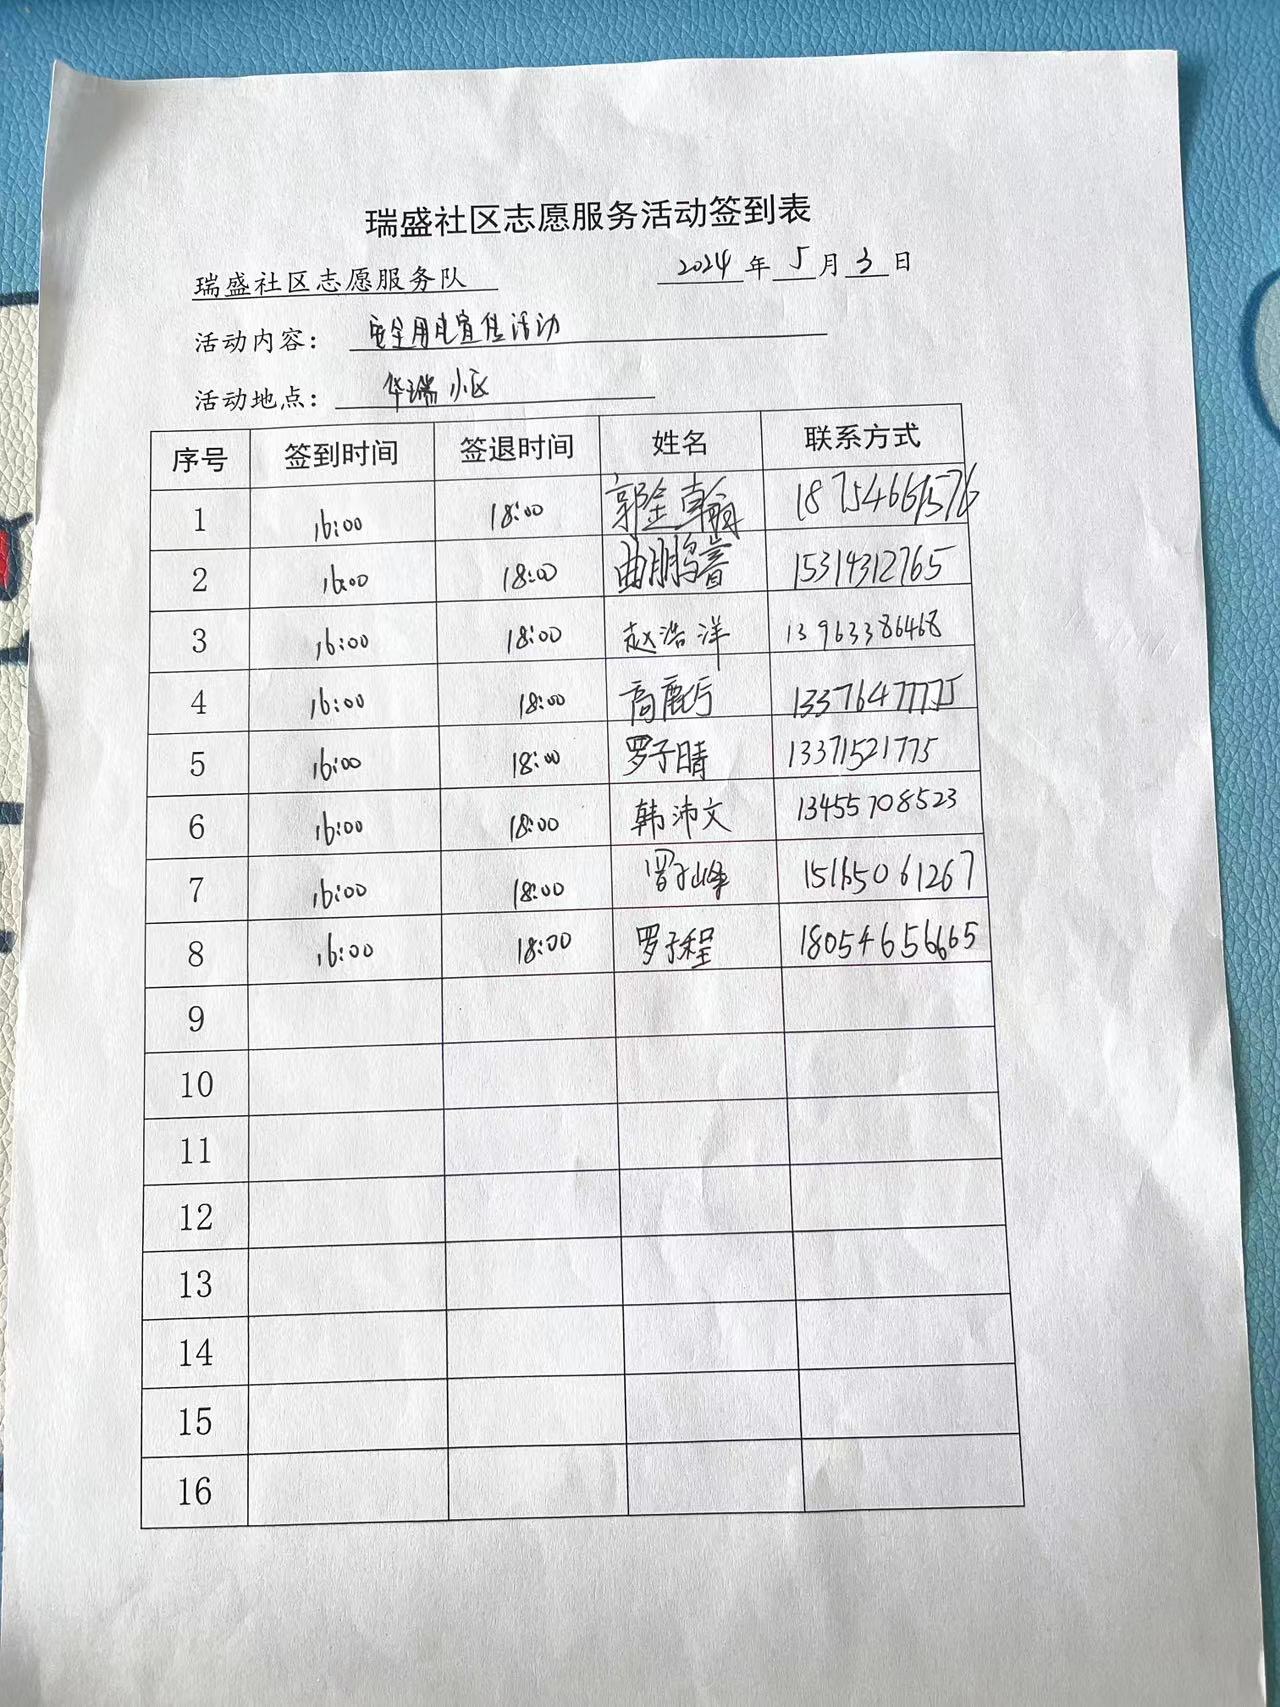 瑞盛社区志愿服务活动签到表
瑞盛社区志愿服务队 2024 年 5 月 3 日
活动内容： 安全用电宣传活动
活动地点： 华瑞小区
序号 签到时间 签退时间 姓名 联系方式
1 16:00 18:00 郭金韩翰 18754661576
2 16:00 18:00 曲鹏睿 15314312765
3 16:00 18:00 赵浩洋 13963386468
4 16:00 18:00 高 13376477775
5 16:00 18:00 罗子晴 13371521775
6 16:00 18:00 韩沛文 13455708523
7 16:00 18:00 罗子峰 15165061267
8 16:00 18:00 罗子程 18054656665
9
10
11
12
13
14
15
16